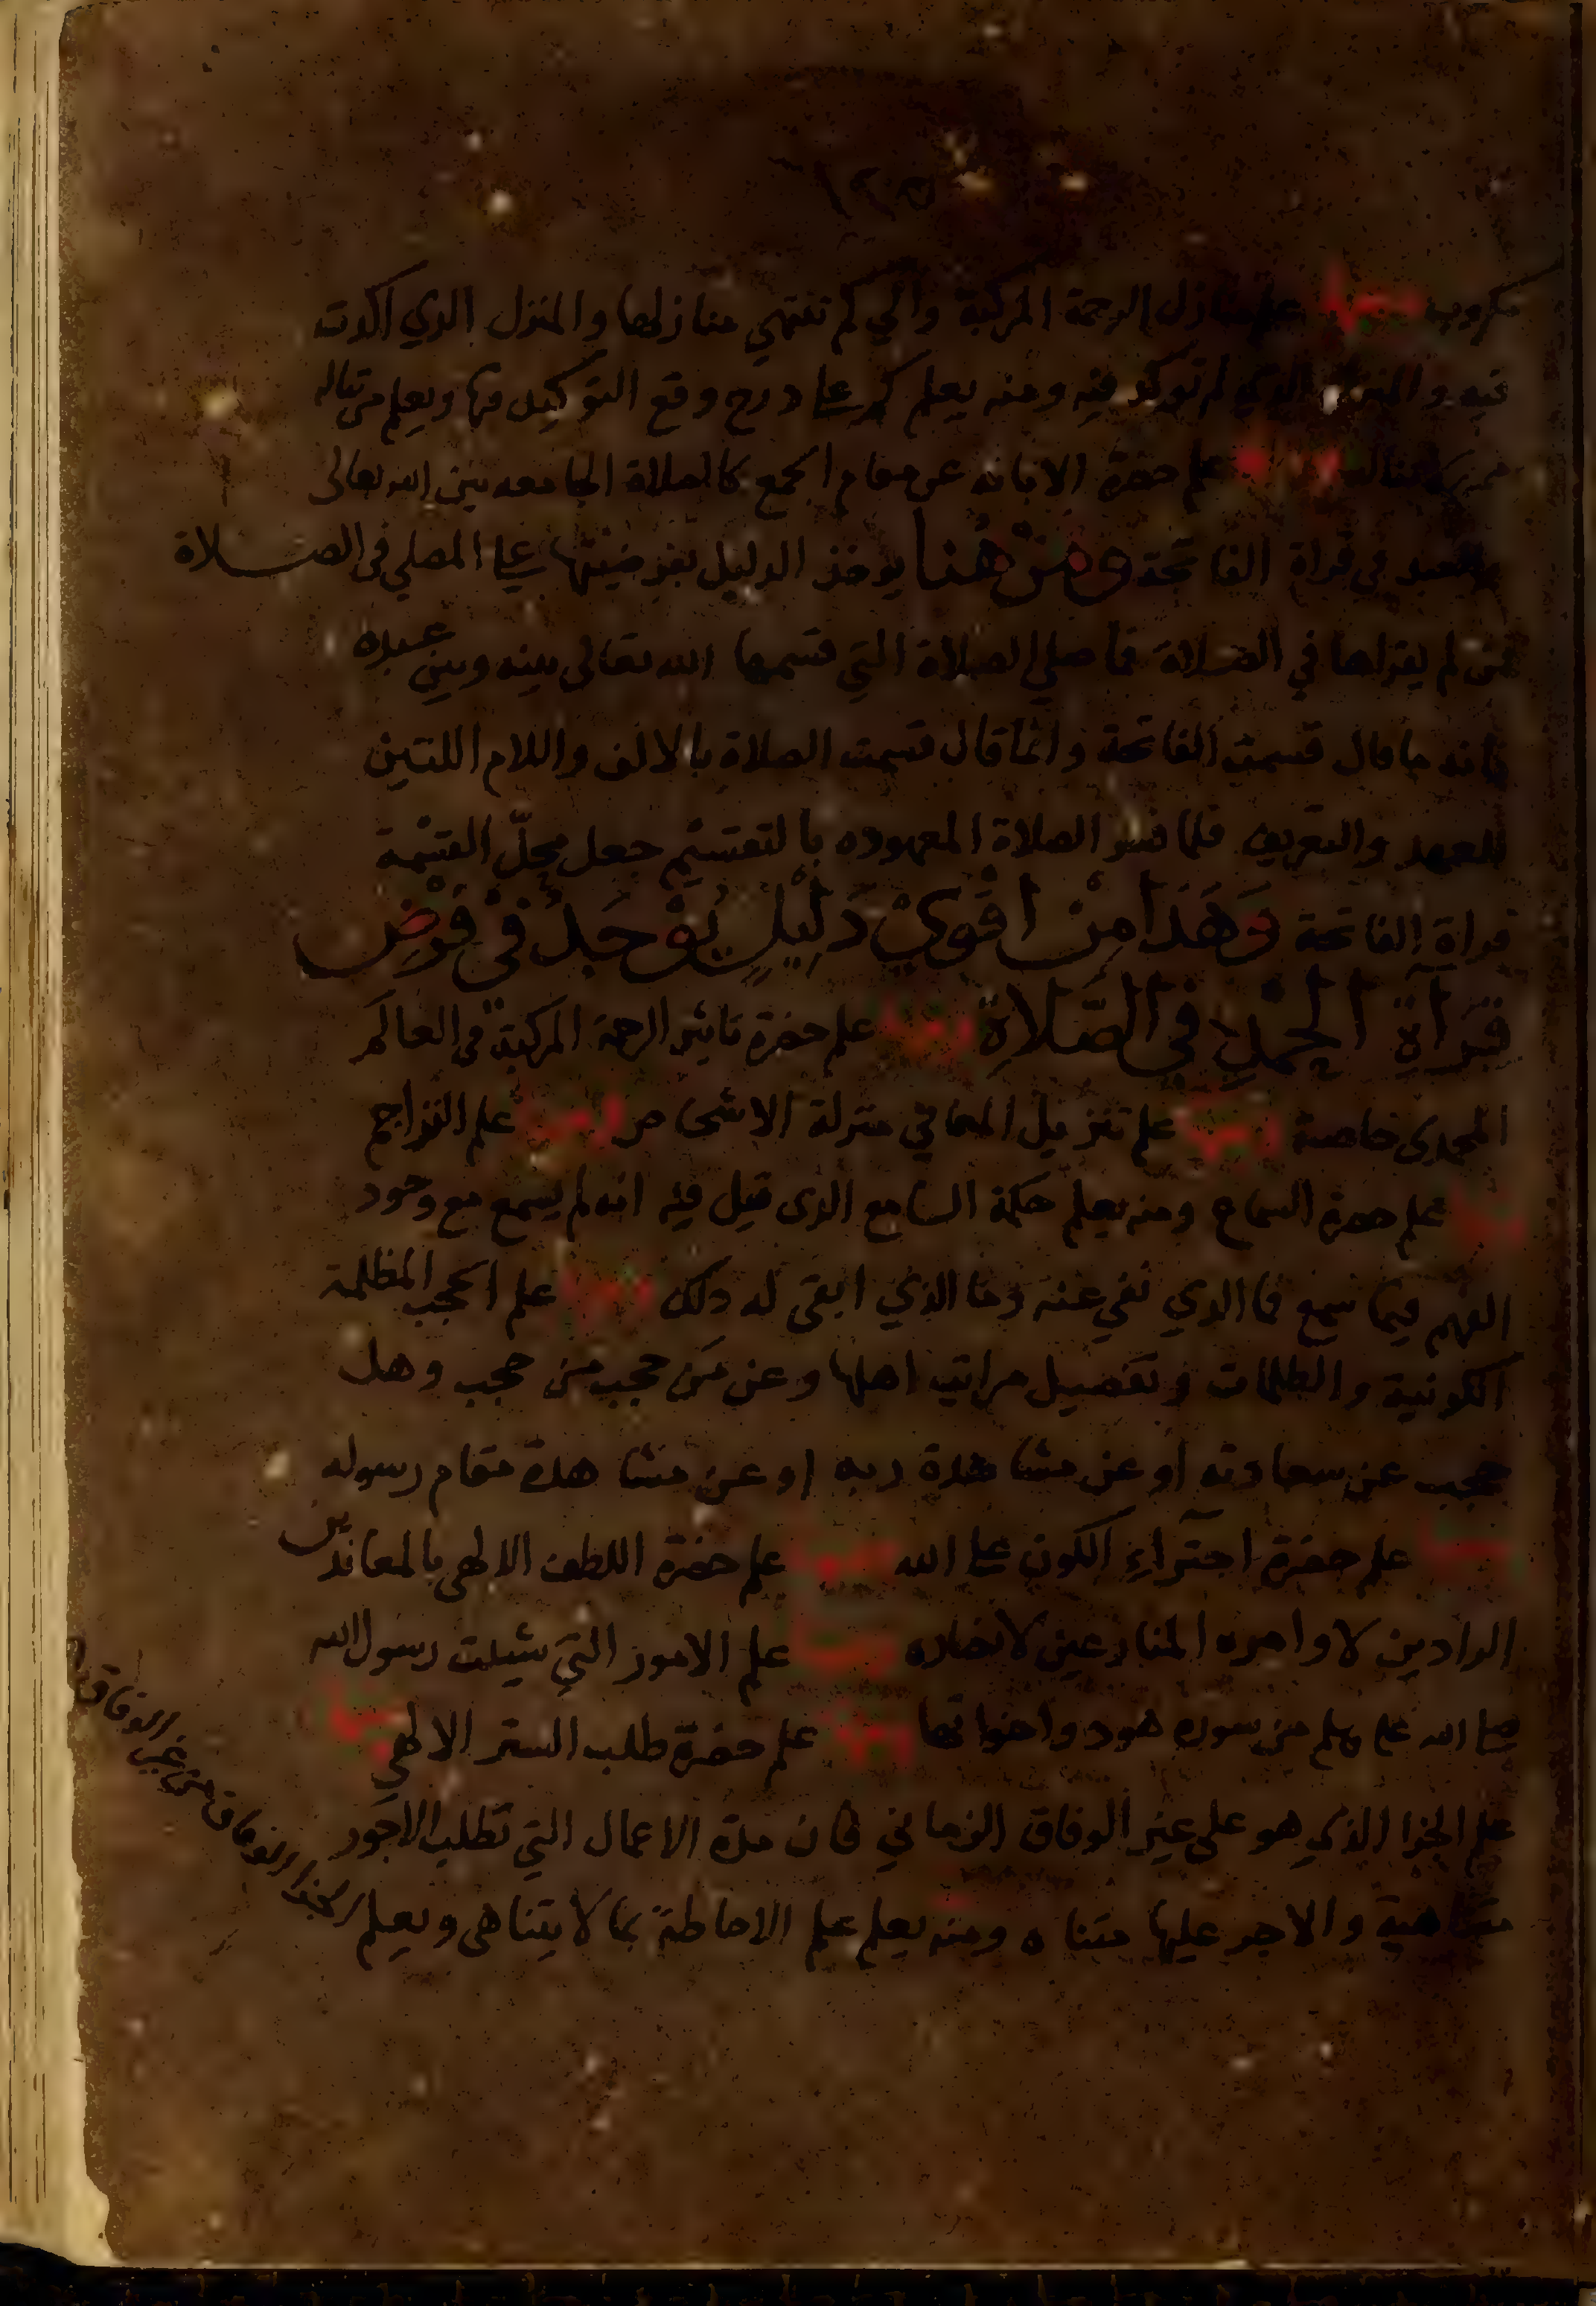 ١٢٥
مكروب ومنها علم منازل الرحمة المركبة والي كم تنتهي منازلها والمنزل الذي اكدت
فيه والمنزل الذي لم توكد فيه ومنه يعلم كم على درج وقع التوكيد فيها ويعلم من تناله
علم حضرة الابانه عن مقام الجمع كالصلاة الجامعه بين الله تعالى
والعبد في قراة الفاتحة ومن هنا يوخذ الدليل بفرضيتها على المصلي في الصلاة
فمن لم يقراها في الصلاة فما صلي الصلاة التي قسمها الله تعالى بينه وبين عبده
فانه ما قال قسمت الفاتحة وانما قال قسمت الصلاة بالالف واللام اللتين
للعهد والتعريف فلما فسر الصلاة المعهوده بالتقسيم جعل محلّ القسمة
قراة الفاتحة وَهَذا مِنْ اقْوَيْ دَلِيْلٍ يُوْجَدُ فيْ فَرْضِ
قرآة الحمْدِ في الصَّلاةِ ومنها علم حضرة تاثير الرحمة المركبة في العالم
المحمدي خاصة ومنها علم تنزيل المعاني منزلة الاشخاص ومنها علم التراجم
ومنها علم حضرة السماع ومنه يعلم حكمة السامع الذي قيل فيه انه لم يسمع مع وجود
الفهم فيما سمع فما الذي نفي عنه وما الذي ابقى له ذلك ومنها علم الحجب المظلمة
الكونية والظلمات وتفصيل مراتب اهلها وعن مَن حجب من حجب وهل
حجب عن سعادته او عن مشاهدة ربه او عن مشاهدة مقام رسوله
ومنها علم حضرة اجتراءِ الكون على الله ومنها علم حضرة اللطف الالهي بالمعاندين
الرادين لاوامره المنازعين لانصاره ومنها علم الامور التي شيبت رسول الله
صلى الله عليه وسلم من سوره هود واخواتها ومنها علم حضرة طلب الستر الالهي ومنها
علم الجزا الذي هو على غير الوفاق الزماني فان مدة الاعمال التي تطلب الاجور
متناهية والاجر عليها متناه ومنه يعلم علم الاحاطة بما لا يتناهى ويعلم
الجزا الوفاق من غير الوفاق